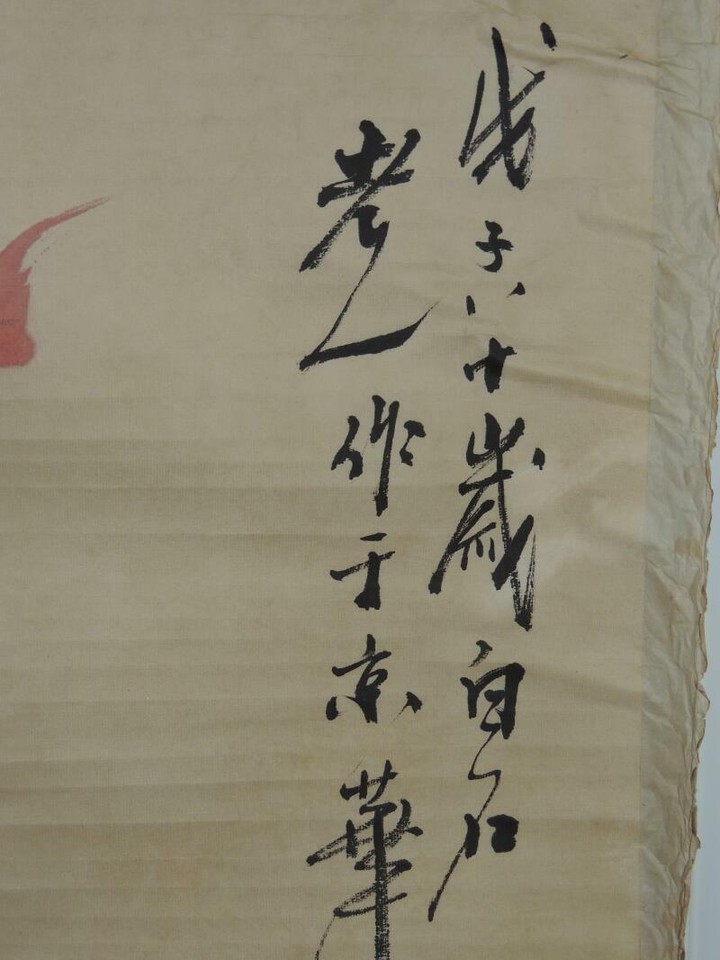 戊子八十歲白石
老人作于京華